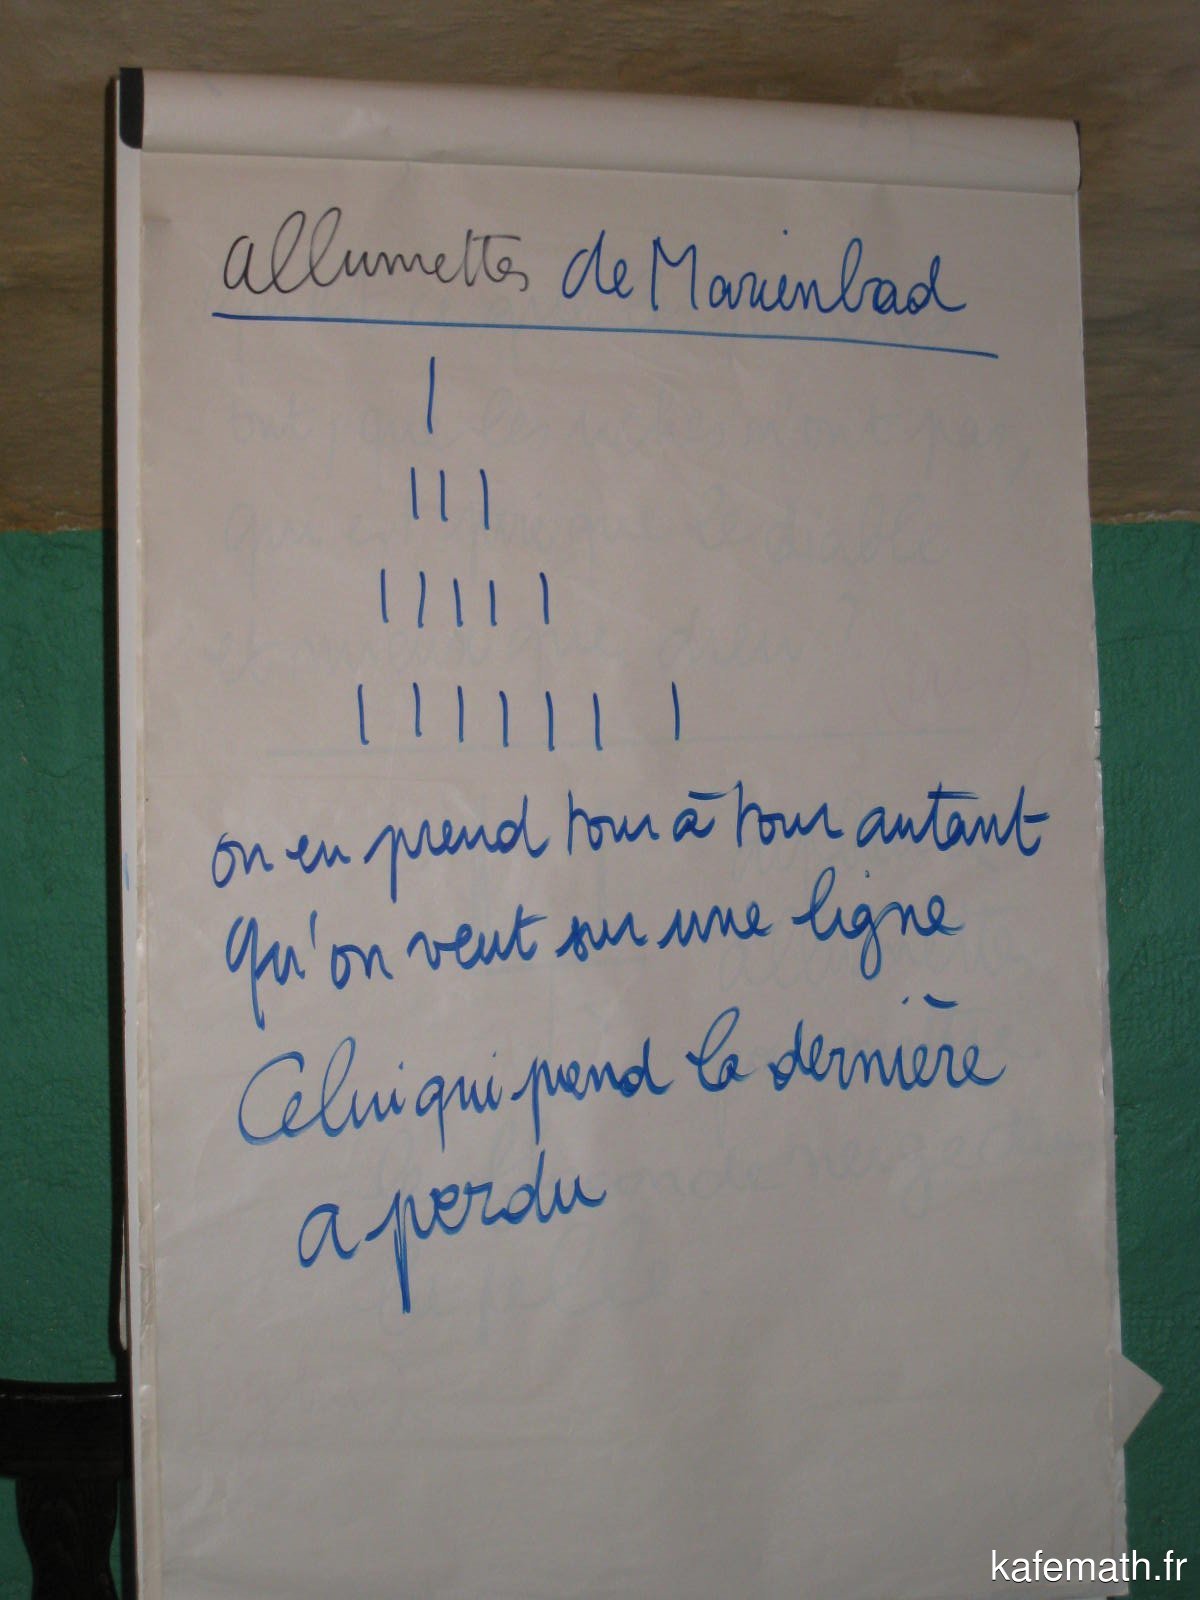 allumettes de Marienbad
|
| | |
| | | | |
| | | | | | |
on en prend tour à tour autant
qu'on veut sur une ligne
Celui qui prend la dernière
a perdu
kafemath.fr